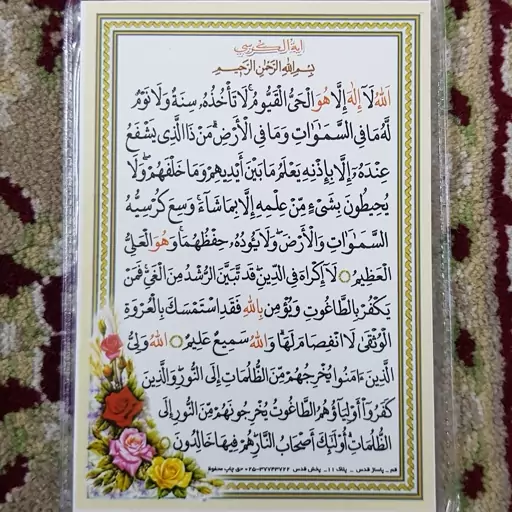 آیة الکرسي
بِسْمِ اللهِ الرَّحْمٰنِ الرَّحِیمِ
اَللّٰهُ لَآ إِلٰهَ إِلَّا هُوَ الْحَيُّ الْقَيُّومُ لَا تَأْخُذُهُ سِنَةٌ وَلَا نَوْمٌ
لَهُ مَا فِي السَّمَاوَاتِ وَمَا فِي الْأَرْضِ مَنْ ذَا الَّذِي يَشْفَعُ
عِنْدَهُ إِلَّا بِإِذْنِهِ يَعْلَمُ مَا بَيْنَ أَيْدِيهِمْ وَمَا خَلْفَهُمْ وَلَا
يُحِيطُونَ بِشَيْءٍ مِنْ عِلْمِهِ إِلَّا بِمَا شَاءَ وَسِعَ كُرْسِيُّهُ
السَّمَاوَاتِ وَالْأَرْضَ وَلَا يَئُودُهُ حِفْظُهُمَا وَهُوَ الْعَلِيُّ
الْعَظِيمُ لَا إِكْرَاهَ فِي الدِّينِ قَدْ تَبَيَّنَ الرُّشْدُ مِنَ الْغَيِّ فَمَنْ
يَكْفُرْ بِالطَّاغُوتِ وَيُؤْمِنْ بِاللهِ فَقَدِ اسْتَمْسَكَ بِالْعُرْوَةِ
الْوُثْقَىٰ لَا انْفِصَامَ لَهَا وَاللهُ سَمِيعٌ عَلِيمٌ اللهُ وَلِيُّ
الَّذِينَ ءَامَنُوا يُخْرِجُهُمْ مِنَ الظُّلُمَاتِ إِلَى النُّورِ وَالَّذِينَ
كَفَرُوا أَوْلِيَاؤُهُمُ الطَّاغُوتُ يُخْرِجُونَهُمْ مِنَ النُّورِ إِلَى
الظُّلُمَاتِ أُولَٰئِكَ أَصْحَابُ النَّارِ هُمْ فِيهَا خَالِدُونَ
قم ـ پاساژ قدس ـ پلاک ۱۱ ـ پخش قدس ۳۷۷۴۳۷۲۲-۰۲۵ حق چاپ محفوظ